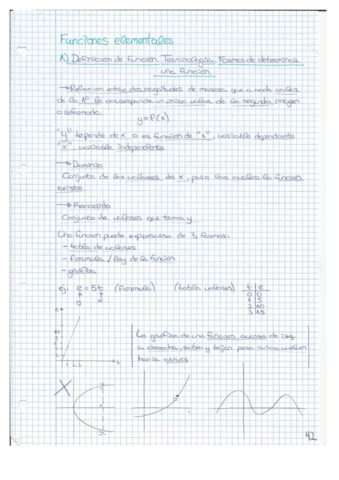 Funciones elementales
1) Definición de función. Terminología. Formas de determinar
una función
→ Relación entre dos magnitudes de manera que a cada valor
de la 1ª le corresponde un único valor de la segunda, imagen
y=f(x)
"y" depende de x o es función de "x", variable dependiente
"x", variable independiente
→ Dominio
Conjunto de los valores de x, para los cuales la función
existe
→ Recorrido
Conjunto de valores que toma y.
Una función puede expresarse de 3 formas:
- tabla de valores
- fórmula / ley de la función
- gráfica
ej: e = 5t (fórmula) (tabla valores) t e
y x
0 0
1 5
2 10
3 15
La gráfica de una función avanza de izq.
a derecha, suben y bajan pero nunca vuelven
hacia atrás
42